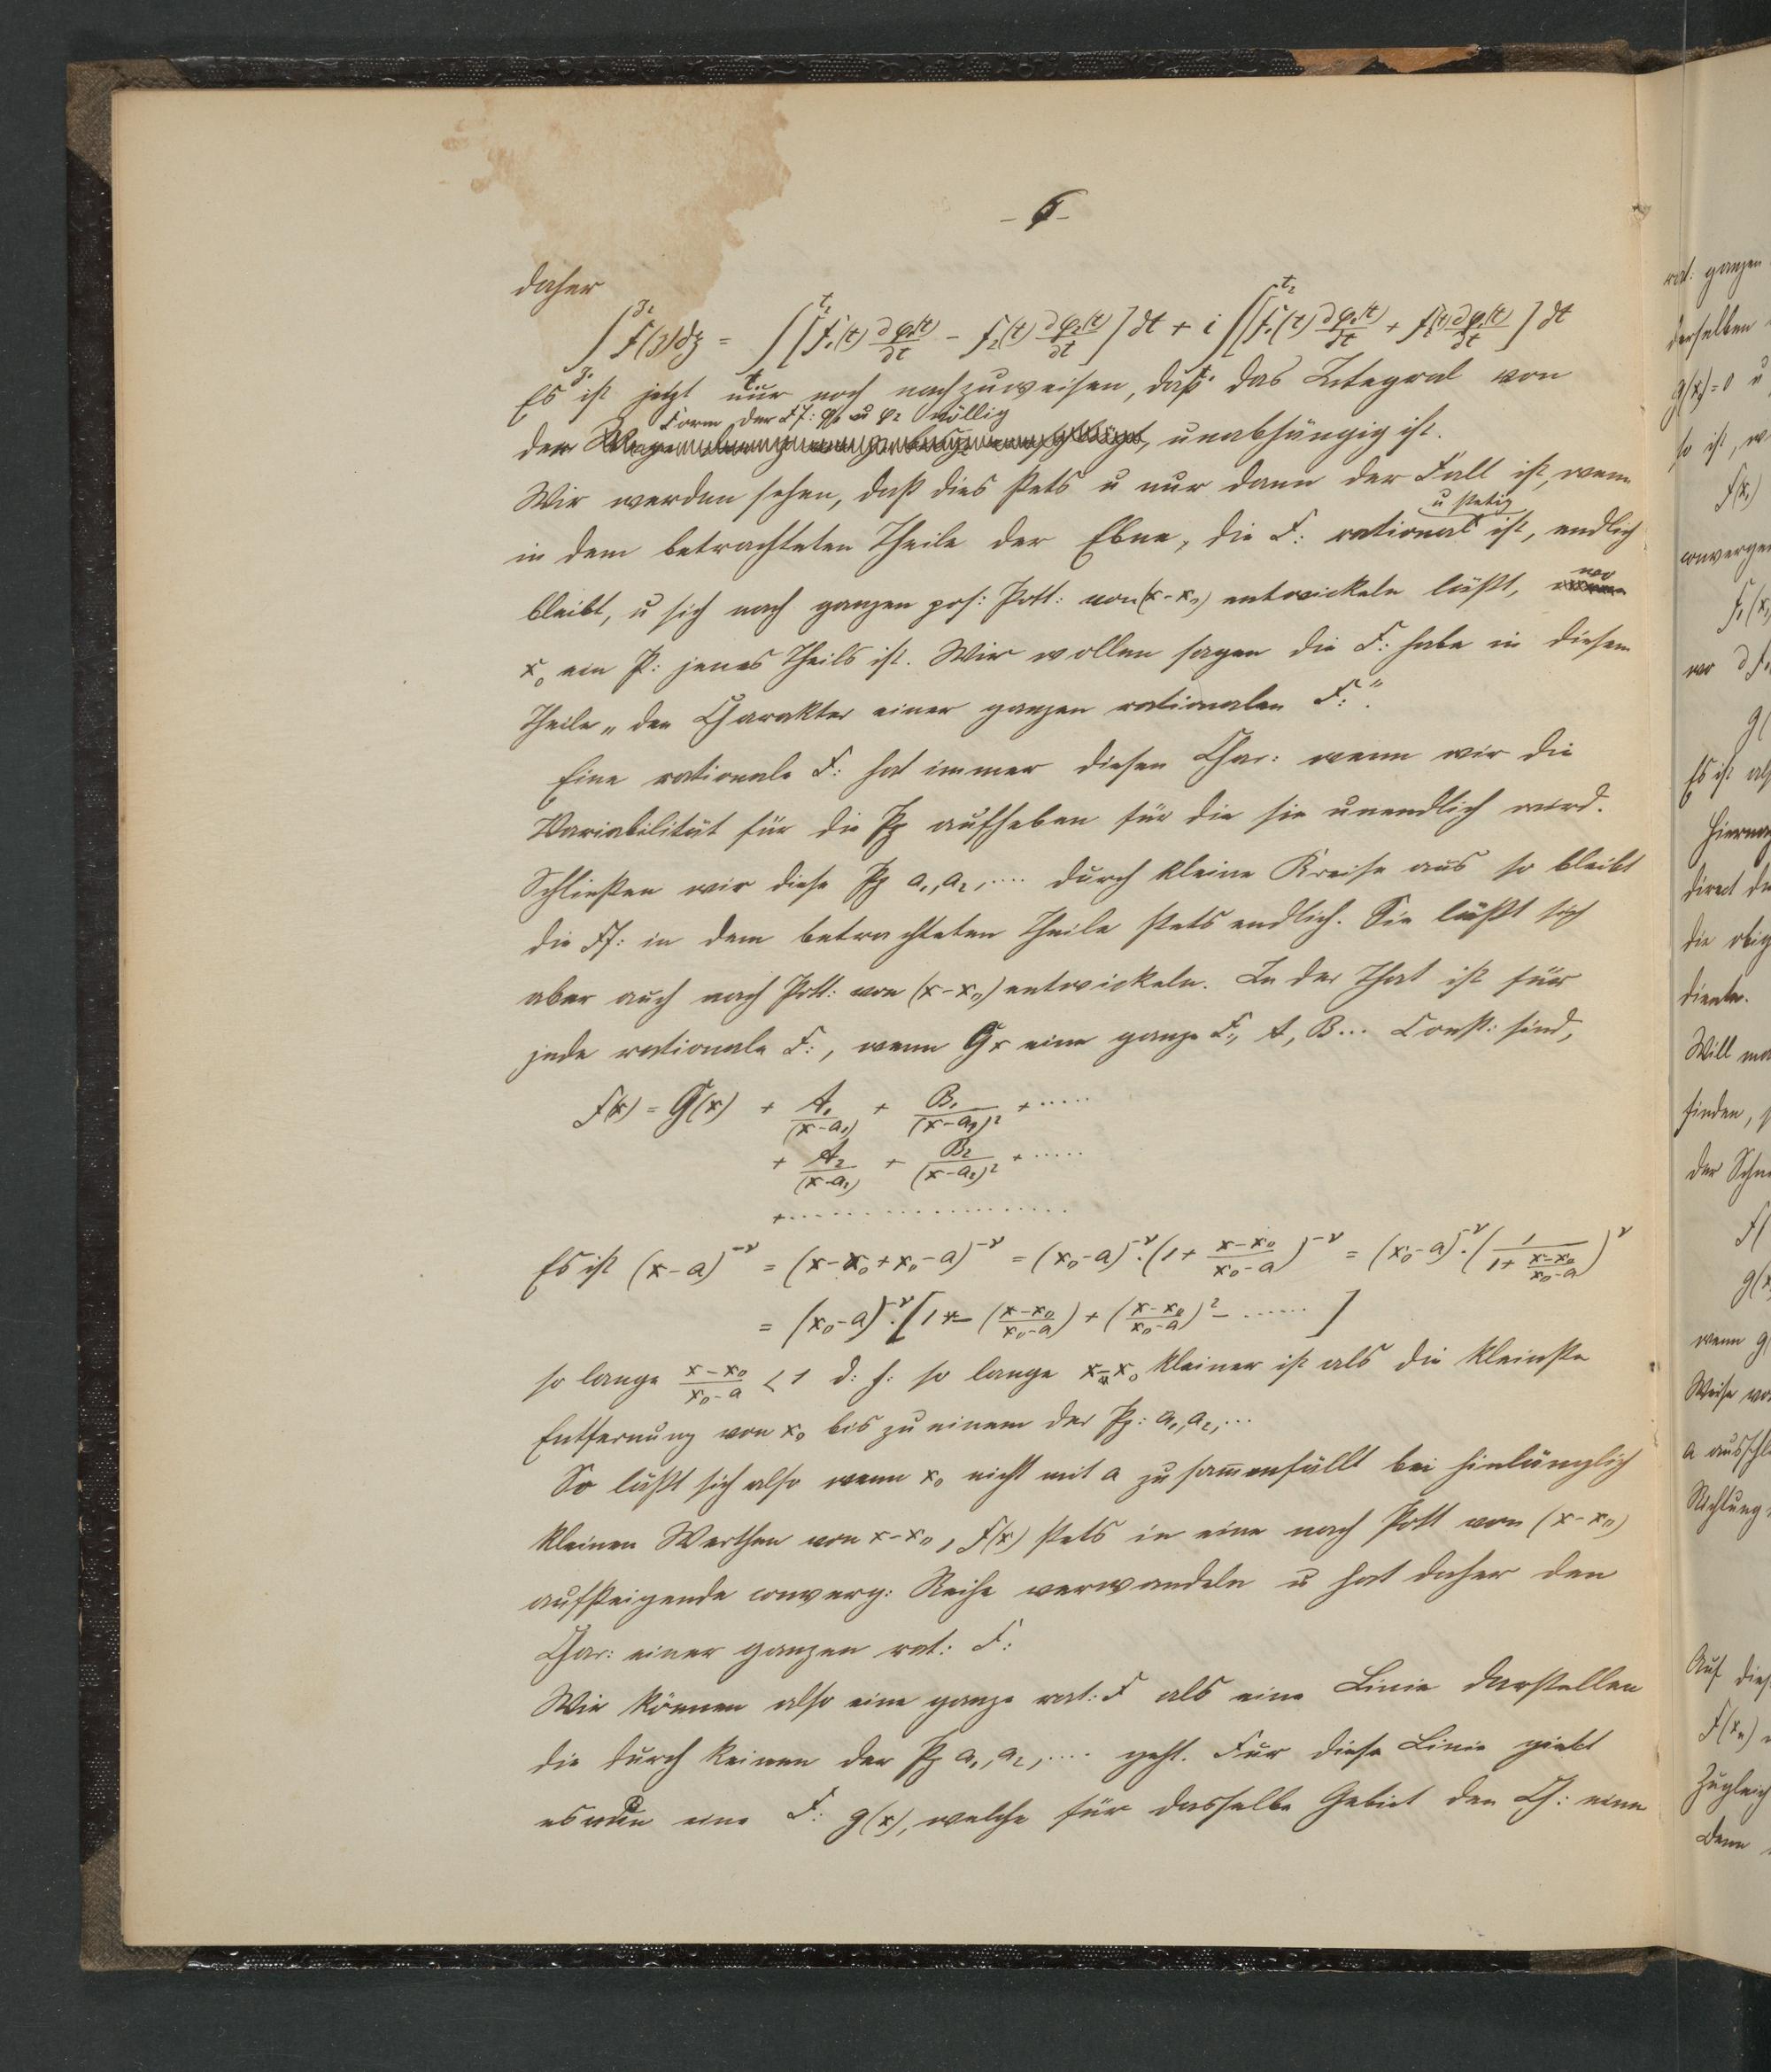 - 6 -
daher
∫_{z_0}^{z_2} F(z)dz = ∫_{t_0}^{t_2} [f_1(t) ∂φ_1(t)/∂t - f_2(t) ∂φ_2(t)/∂t] dt + i ∫_{t_0}^{t_2} [f_1(t) ∂φ_2(t)/∂t + f_2(t) ∂φ_1(t)/∂t] dt
Es ist jetzt nur noch nachzuweisen, daß das Integral von
Form der Ff: φ_1 u φ_2 völlig
der unabhängig ist.
Wir werden sehen, daß dies stets u nur dann der Fall ist, wenn
u stetig
in dem betrachteten Theile der Ebne, die F: rational ist, endlich
bleibt, u sich nach ganzen pos: Pott: von (x-x_0) entwickeln läßt, wo
x_0 ein P: jenes Theils ist. Wir wollen sagen die F: habe in diesem
Theile „den Charakter einer ganzen rationalen F:".
Eine rationale F: hat immer diesen Char: wenn wir die
Variabilität für die Pp aufheben für die sie unendlich wird.
Schließen wir diese Pp a_1, a_2, .... durch kleine Kreise aus so bleibt
die Ff: in dem betrachteten Theile stets endlich. Sie läßt sich
aber auch nach Pott: von (x-x_0) entwickeln. In der That ist für
jede rationale F:, wenn Gx eine ganze F:, A, B... Const: sind,
F(x) = G(x) + A_1/(x-a_1) + B_1/(x-a_1)^2 + .....
+ A_2/(x-a_2) + B_2/(x-a_2)^2 + .....
+ ....................
Es ist (x-a)^{-ν} = (x-x_0+x_0-a)^{-ν} = (x_0-a)^{-ν}·(1+ (x-x_0)/(x_0-a))^{-ν} = (x_0-a)^{-ν}·(1/(1+ (x-x_0)/(x_0-a)))^ν
= (x_0-a)^{-ν}·[1 - ((x-x_0)/(x_0-a)) + ((x-x_0)/(x_0-a))^2 - ...... ]
so lange (x-x_0)/(x_0-a) < 1 d: h: so lange x-x_0 kleiner ist als die kleinste
Entfernung von x_0 bis zu einem der Pp: a_1, a_2, ...
So läßt sich also wenn x_0 nicht mit a zusam̄enfällt bei hinlänglich
kleinen Werthen von x-x_0, F(x) stets in eine nach Pott von (x-x_0)
aufsteigende converg: Reihe verwandeln u hat daher den
Char: einer ganzen rat: F:
Wir können also eine ganze rat: F als eine Linie darstellen
die durch keinen der Pp a_1, a_2, .... geht. Für diese Linie giebt
es eine F: g(x), welche für dasselbe Gebiet den Ch: einer